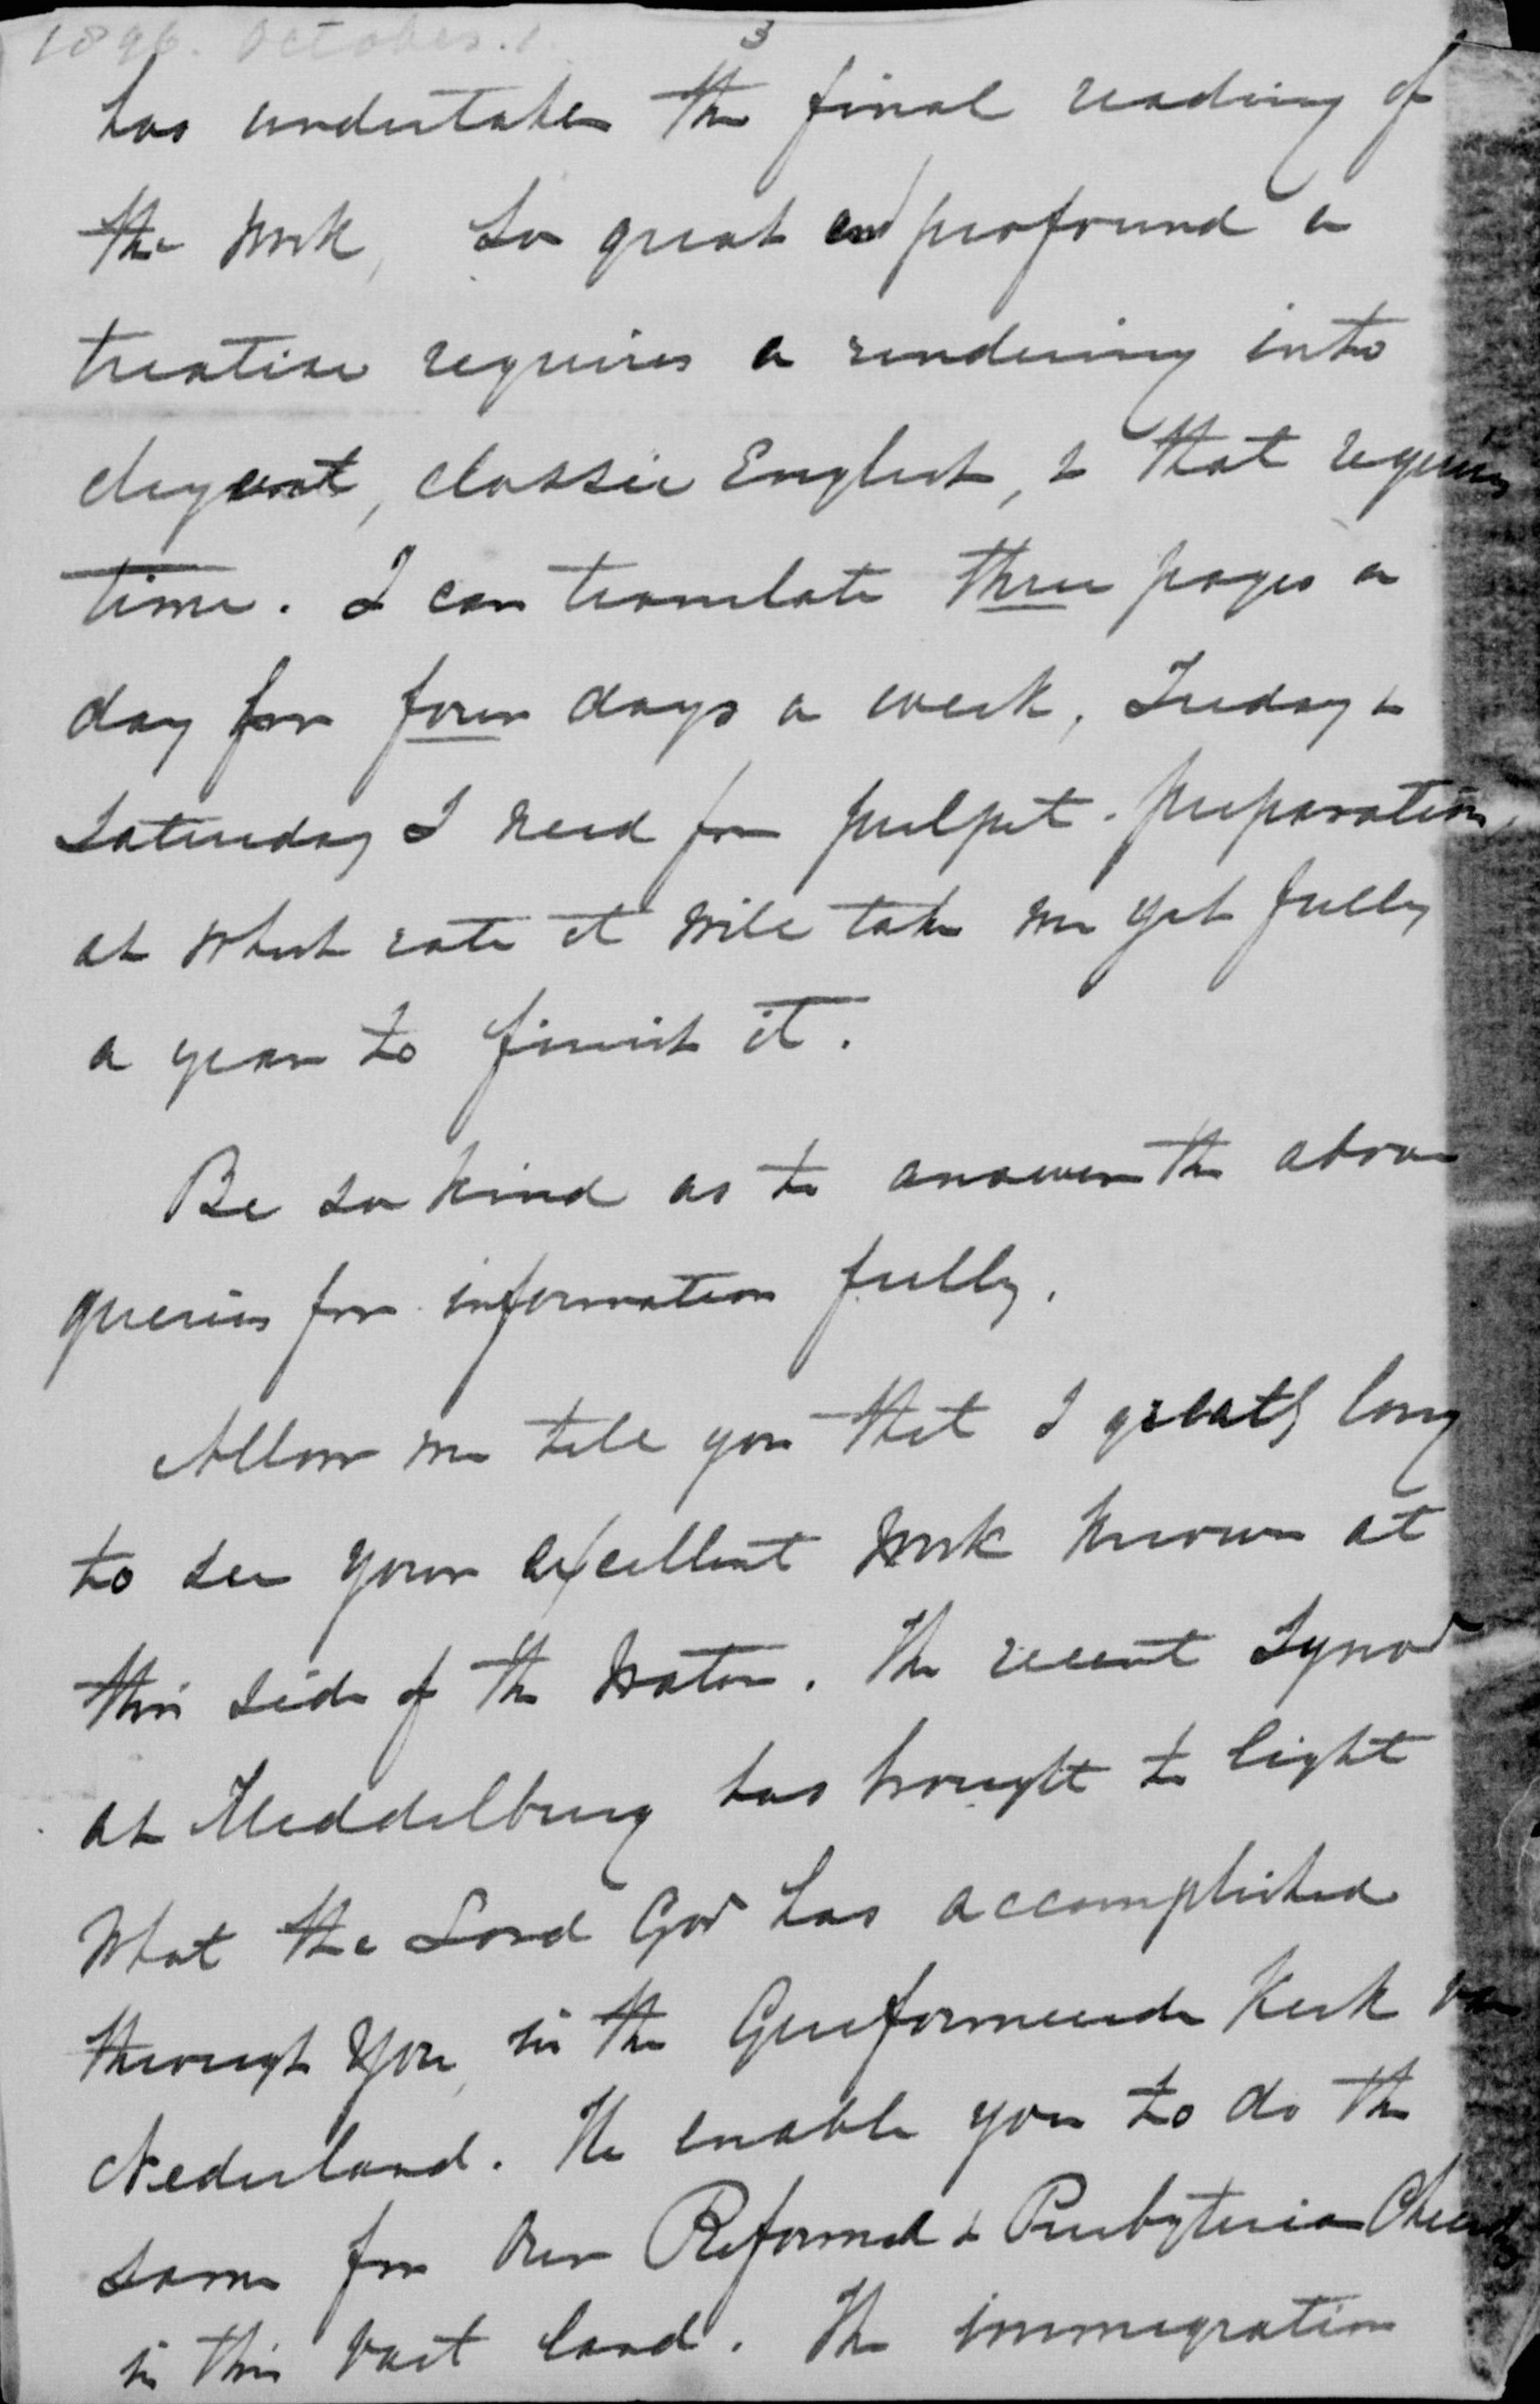 1896. October. 1.
3
has undertaken the final reading of
the work, So great and profound a
treatise requires a rendering into
elegant, classic English, & that requires
time. I can translate three pages a
day for four days a week, Friday &
Saturday I need for pulpit-preparation,
at which rate it will take me yet fully
a year to finish it.
Be so kind as to answer the above
queries for information fully.
Allow me tell you that I greatly long
to see your excellent work known at
this side of the water. The recent Synod
at Middelburg has brought to light
what the Lord God has accomplished
through you, in the Gereformeerde Kerk van
Nederland. He enable you to do the
same for our Reformed & Presbyterian Churches
in this vast land. The immigration